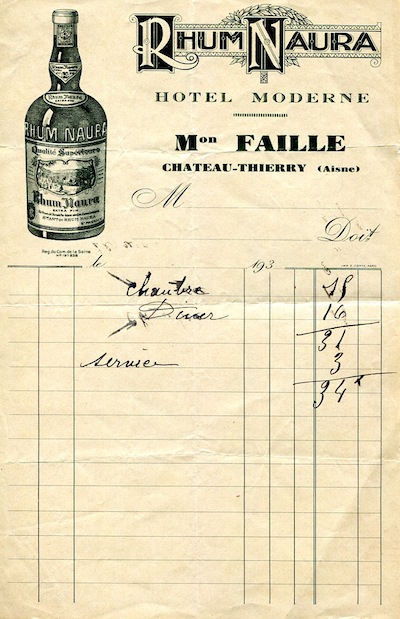 RHUM NAURA
HOTEL MODERNE
Mon FAILLE
CHATEAU-THIERRY (Aisne)
M
Doit
RHUM NAURA
Qualité Supérieure
Rhum Naura
EXTRA FIN
Reg. du Com. de la Seine
le 193
Chambre 18
Diner 16
31
service 3
34